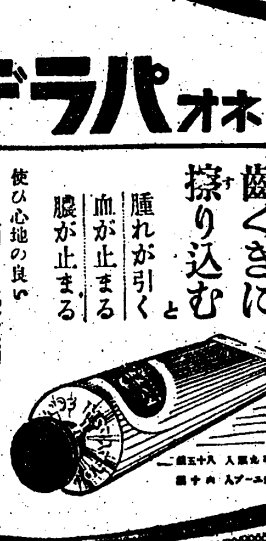 ネオ パラデ
齒ぐきに
擦り込むと
腫れが引く
血が止まる
膿が止まる
使ひ心地の良い